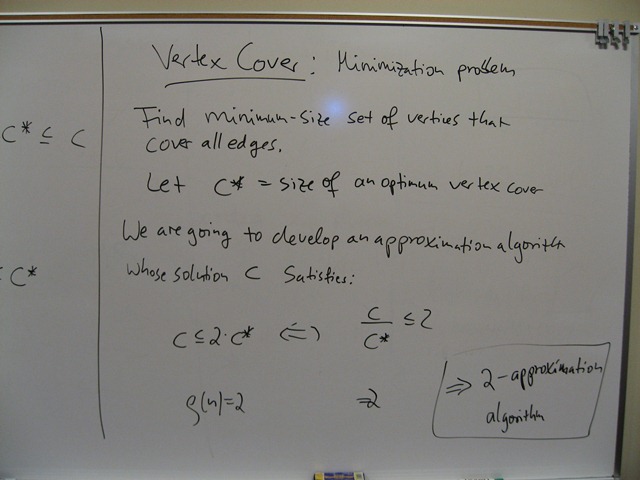 Vertex Cover: Minimization problem
Find minimum-size set of vertices that
cover all edges.
C* ≤ C
Let C* = size of an optimum vertex cover
We are going to develop an approximation algorithm
whose solution C satisfies:
≤ C*
C ≤ 2·C* ⇔ C/C* ≤ 2
ρ(n)=2 ⇒2
⇒ 2-approximation
algorithm